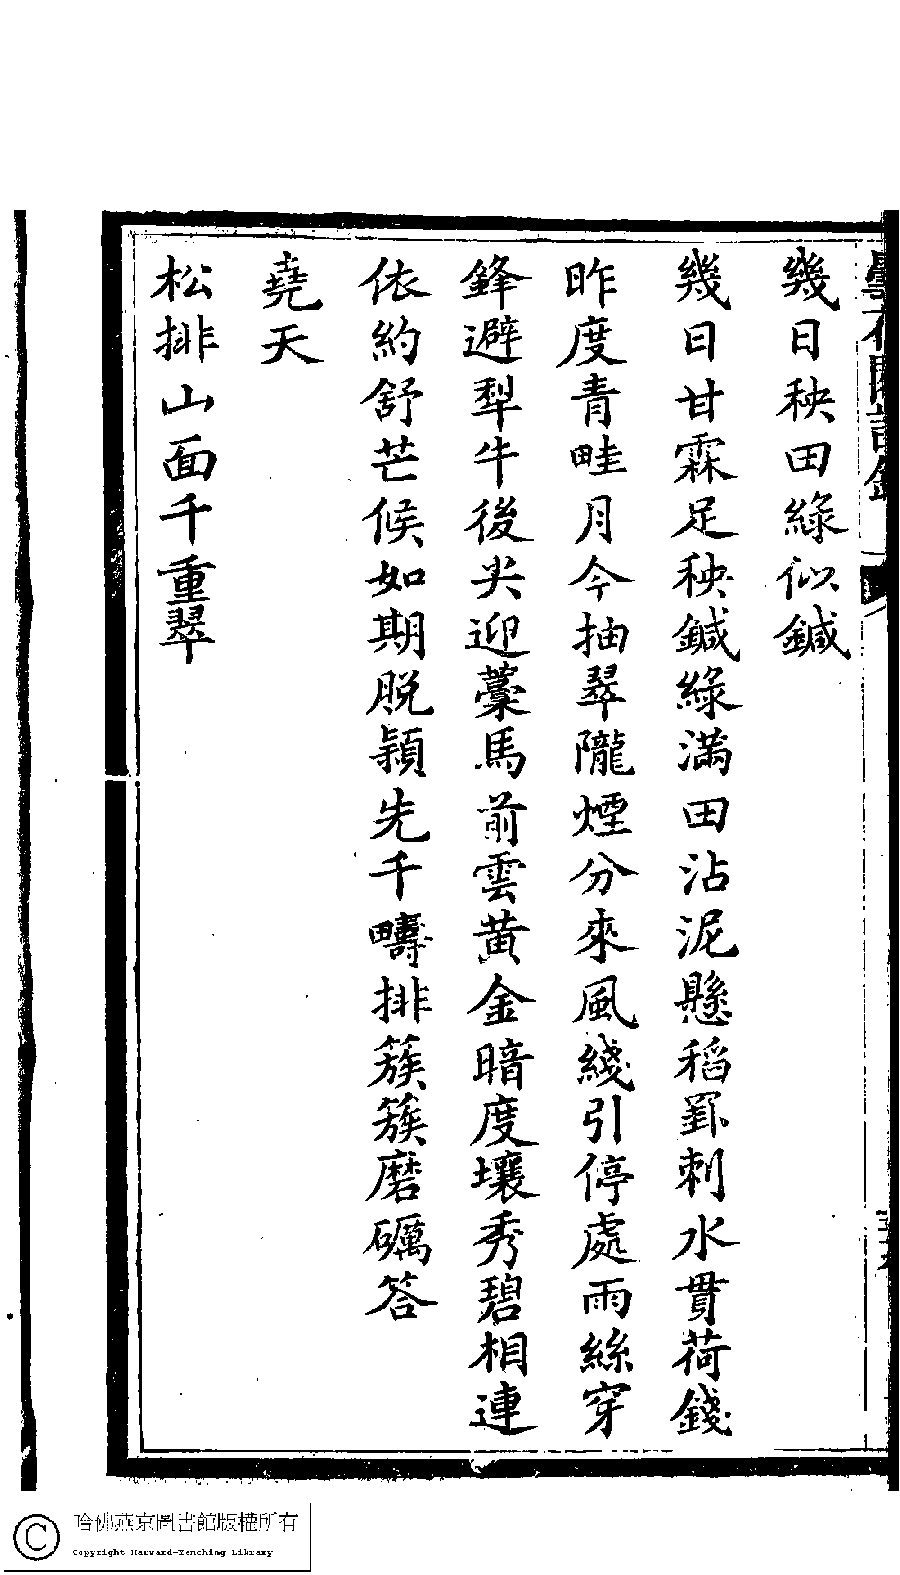 幾日秧田綠似鍼
幾日甘霖足秧鍼綠滿田沾泥懸稻罫刺水貫荷錢
昨度青畦月今抽翠隴煙分來風綫引停處雨絲穿
鋒避犁牛後尖迎藁馬前雲黃金暗度壤秀碧相連
依約舒芒候如期脫穎先千疇排簇簇磨礪答
堯天
松排山面千重翠
哈佛燕京圖書館版權所有
Copyright Harvard-Yenching Library